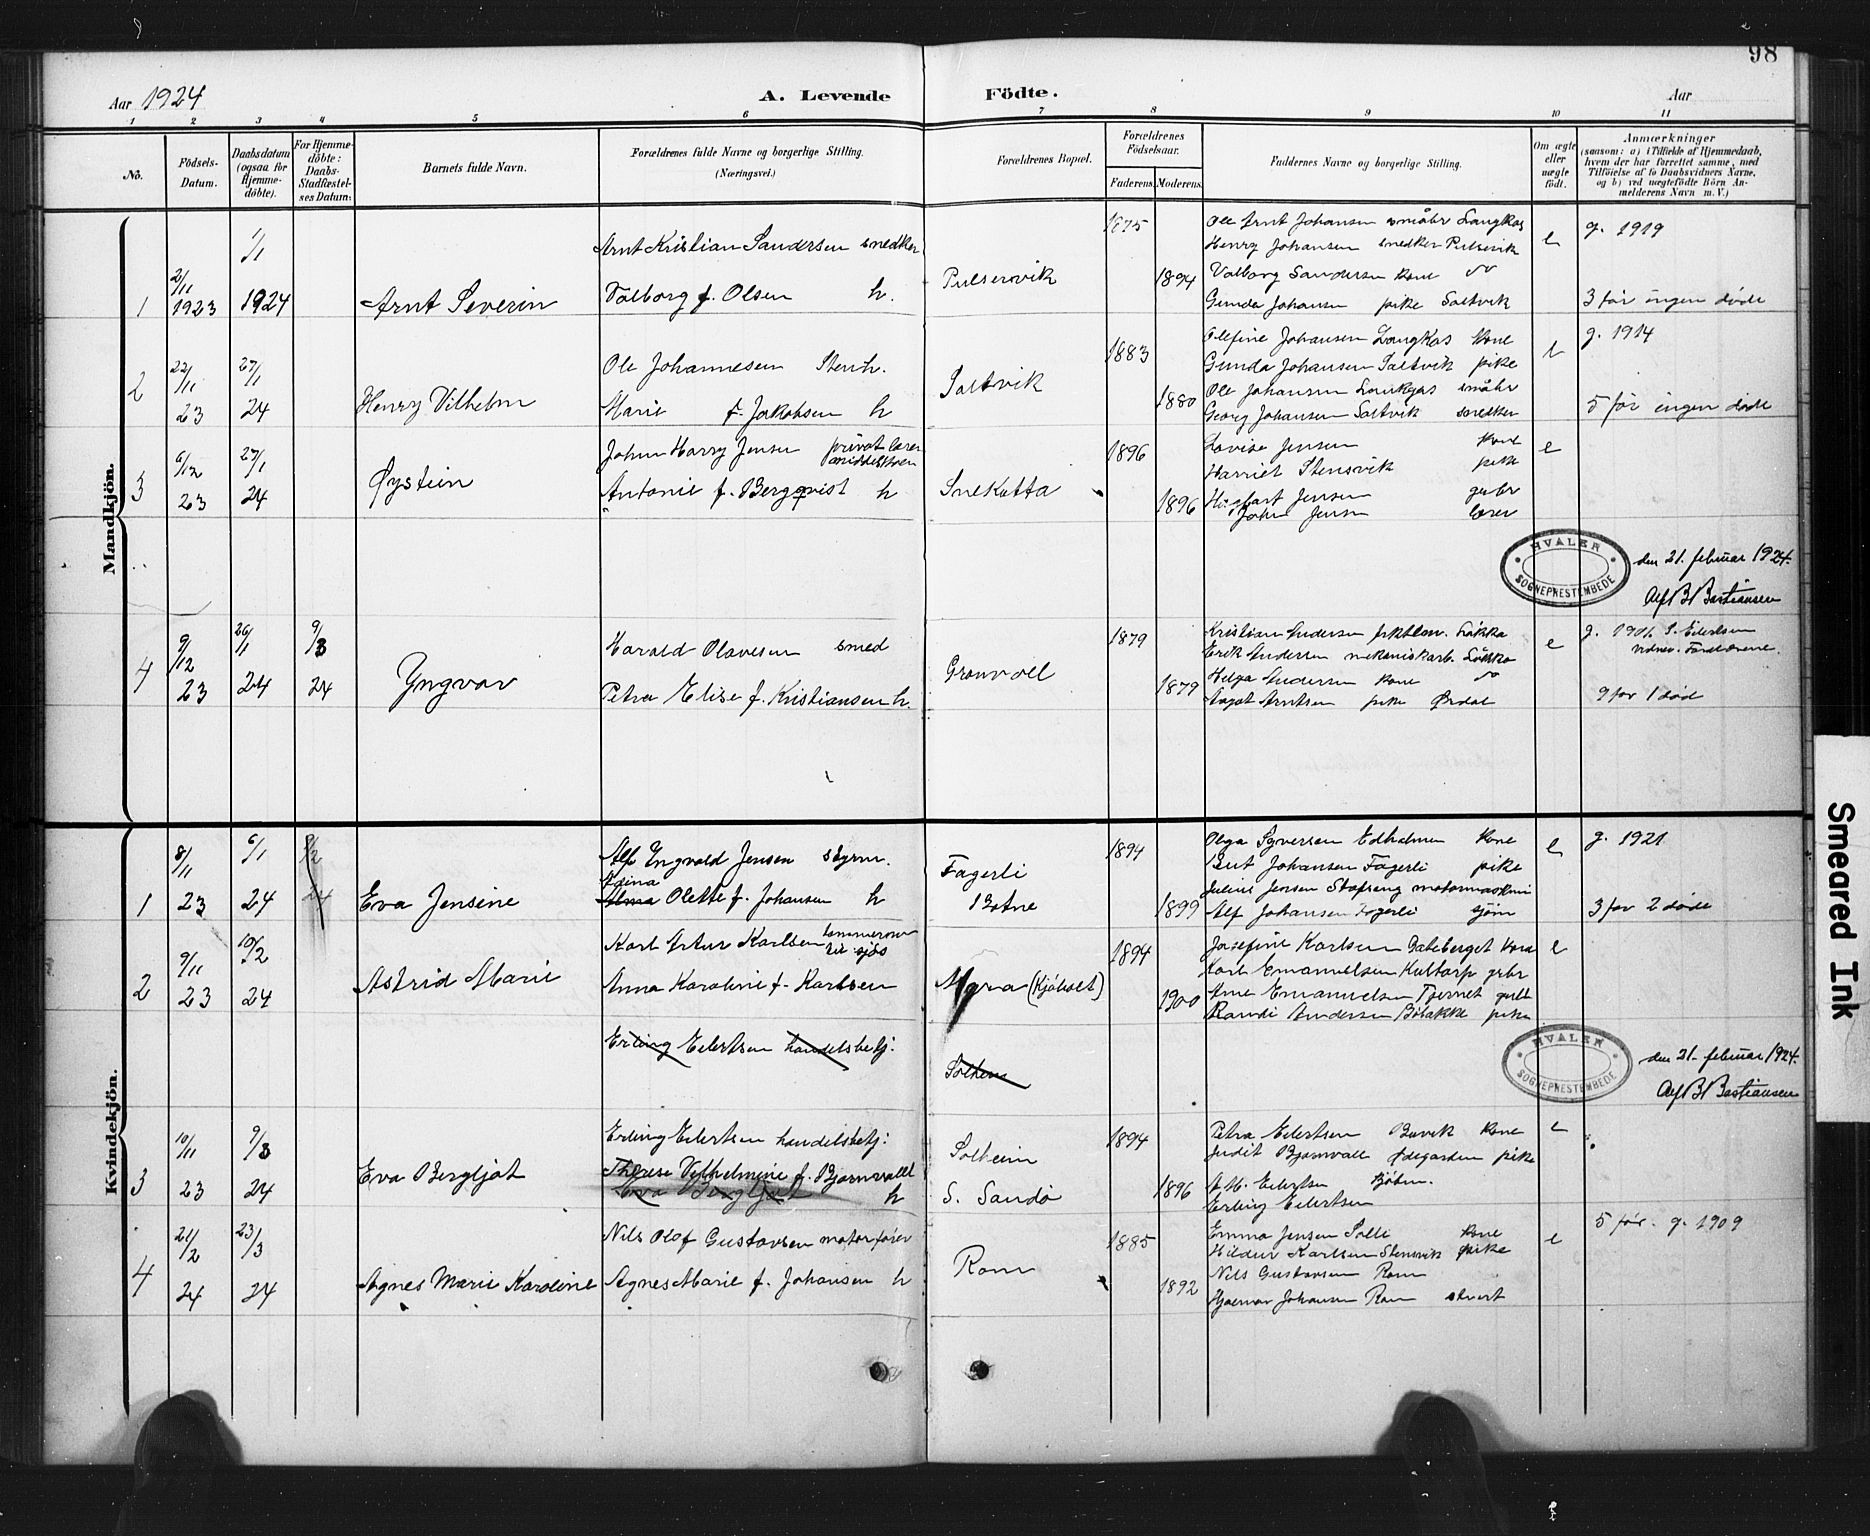 98
Aar 1924
A. Levende
Födte.
Aar
1 2 3 4 5 6 7 8 9 10 11
No.
Födsels-
Datum.
Daabsdatum
(ogsaa for
Hjemme-
döbte).
For Hjemme-
döbte:
Daabs-
Stadfæstel-
ses Datum:
Barnets fulde Navn.
Forældrenes fulde Navne og borgerlige Stilling.
(Næringsvei.)
Forældrenes Bopæl.
Forældrenes
Födselsaar.
Faderens. Moderens.
Faddernes Navne og borgerlige Stilling.
Om ægte
eller
uægte
födt.
Anmærkninger
(saasom: a) i Tilfælde af Hjemmedaab,
hvem der har forrettet samme, med
Tilföielse af to Daabsvidners Navne,
og b) ved uægtefödte Börn An-
melderens Navn m. V.)
Mandkjön.
1
2/11
1923
1/1
1924
Arnt Severin
Arnt Kristian Sandersen snedker
Valborg f. Olsen h.
Pulservik
1875
1894
Ole Arnt Johansen småbr Langkas
Henry Johansen snedker Pulservik
Valborg Sandersen kone
Gunda Johansen pike Saltvik
e
g. 1919
3 før ingen døde
2
22/11
23
27/1
24
Henry Vilhelm
Ole Johannesen Stenh.
Marie f. Jakobsen h
Saltvik
1883
1880
Olefine Johansen Langkas kone
Gunda Johansen Saltvik pike
Ole Johansen Langkas småbr
Georg Johansen Saltvik snedker
e
g. 1914
5 før ingen døde
3
6/12
23
27/1
24
Øystein
John Harry Jensen privat lærer
middelskolen
Antonie f. Bergqvist h
Snekotta
1896
1896
Lovise Jensen kone
Harriet Stensvik pike
Jensen gbr
John Jensen lærer
e
HVALER
SOGNEPRESTEMBEDE
den 21. februar 1924.
Alf B Bastiansen
4
9/12
23
26/1
24
9/3
24
Yngvar
Harald Olavesen smed
Petra Elise f. Kristiansen h.
Grønvoll
1879
1879
Kristian Andersen Løkka
Erik Andersen mekanisk arb. Løkka
Helga Andersen kone
Aagot Arntsen pike Ørdal
e
g. 1901. S. Eilertsen
9 før 1 død
Kvindekjön.
1
8/11
23
6/1
24
Eva Jensine
Alf Yngvald Jensen styrm.
Edina
Alma Olette f. Johansen h
Fagerli
Botne
1894
1899
Olga Syversen Edholmen kone
Johansen Fagerli pike
Julius Jensen Stafseng motormaskini
Alf Johansen Fagerli sjøm
e
g. 1921
3 før 2 døde
2
9/11
23
10/2
24
Astrid Marie
Karl Artur Karlsen tømmermann
til sjøs
Anna Karoline f. Karlsen
Myra (Kjøholt)
1894
1900
Josefine Karlsen kone
Karl Emanuelsen Kultorp gbr
Arne Emanuelsen Tjernet gutt
Randi Andersen Bøbakke pike
e
Erling Eilertsen handelsbetj.
Solheim
HVALER
SOGNEPRESTEMBEDE
den 21. februar 1924.
Alf B Bastiansen
3
10/11
23
9/3
24
Eva Bergljot
Erling Eilertsen handelsbetj.
Therese Vilhelmine f. Bjørnvall
Eva Bergljot h
Solheim
S. Sandø
1894
1896
Petra Eilertsen Buvik kone
Judit Bjørnvall Ødegården pike
A. M. Eilertsen kjøbm.
Erling Eilertsen
e
4
21/2
24
23/3
24
Agnes Marie Karoline
Nils Olof Gustavsen motorfører
Agnes Marie f. Johansen h
Rom
1885
1892
Emma Jensen Solli kone
Hildur Karlsen Stensvik pike
Nils Gustavsen Rom
Hjalmar Johansen Rom stuert
e
5 før. g. 1909
Smeared Ink